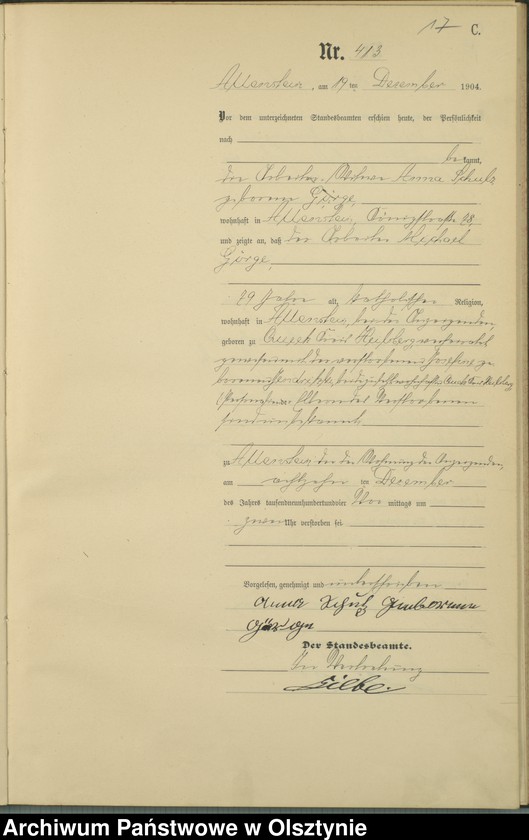 17 C.
Nr. 413
Allenstein, am 19ten Dezember 1904.
Vor dem unterzeichneten Standesbeamten erschien heute, der Persönlichkeit
nach
bekannt,
die Arbeiter-Witwe Anna Schulz
geborene Görge
wohnhaft in Allenstein, Königstraße 28
und zeigte an, daß der Arbeiter Michael
Görge,
29 Jahre alt, katholischer Religion,
wohnhaft in Allenstein, bei der Anzeigenden,
geboren zu Kreis Heilsberg
der verstorbenen
geborenen
Eltern des Verstorbenen
zu Allenstein in der Wohnung der Anzeigenden,
am achtzehnten Dezember
des Jahres tausendneunhundertundvier mittags um
zwei Uhr verstorben sei
Vorgelesen, genehmigt und unterschrieben
Anna Schulz geborene
Görge
Der Standesbeamte.
In Vertretung
Archiwum Państwowe w Olsztynie